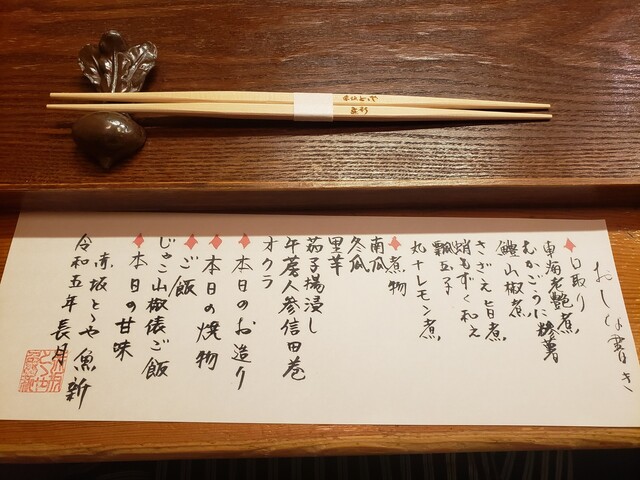 おしながき
口取り
車海老艶煮
鱧山椒煮
さざえ旨煮
蛸もずく和え
瓢玉子
丸十レモン煮
煮物
南瓜
冬瓜
里芋
茄子揚浸し
牛蒡人参信田巻
オクラ
本日のお造り
本日の焼物
ご飯
じゃこ山椒俵ご飯
本日の甘味
赤坂とゝや魚新
令和五年 長月